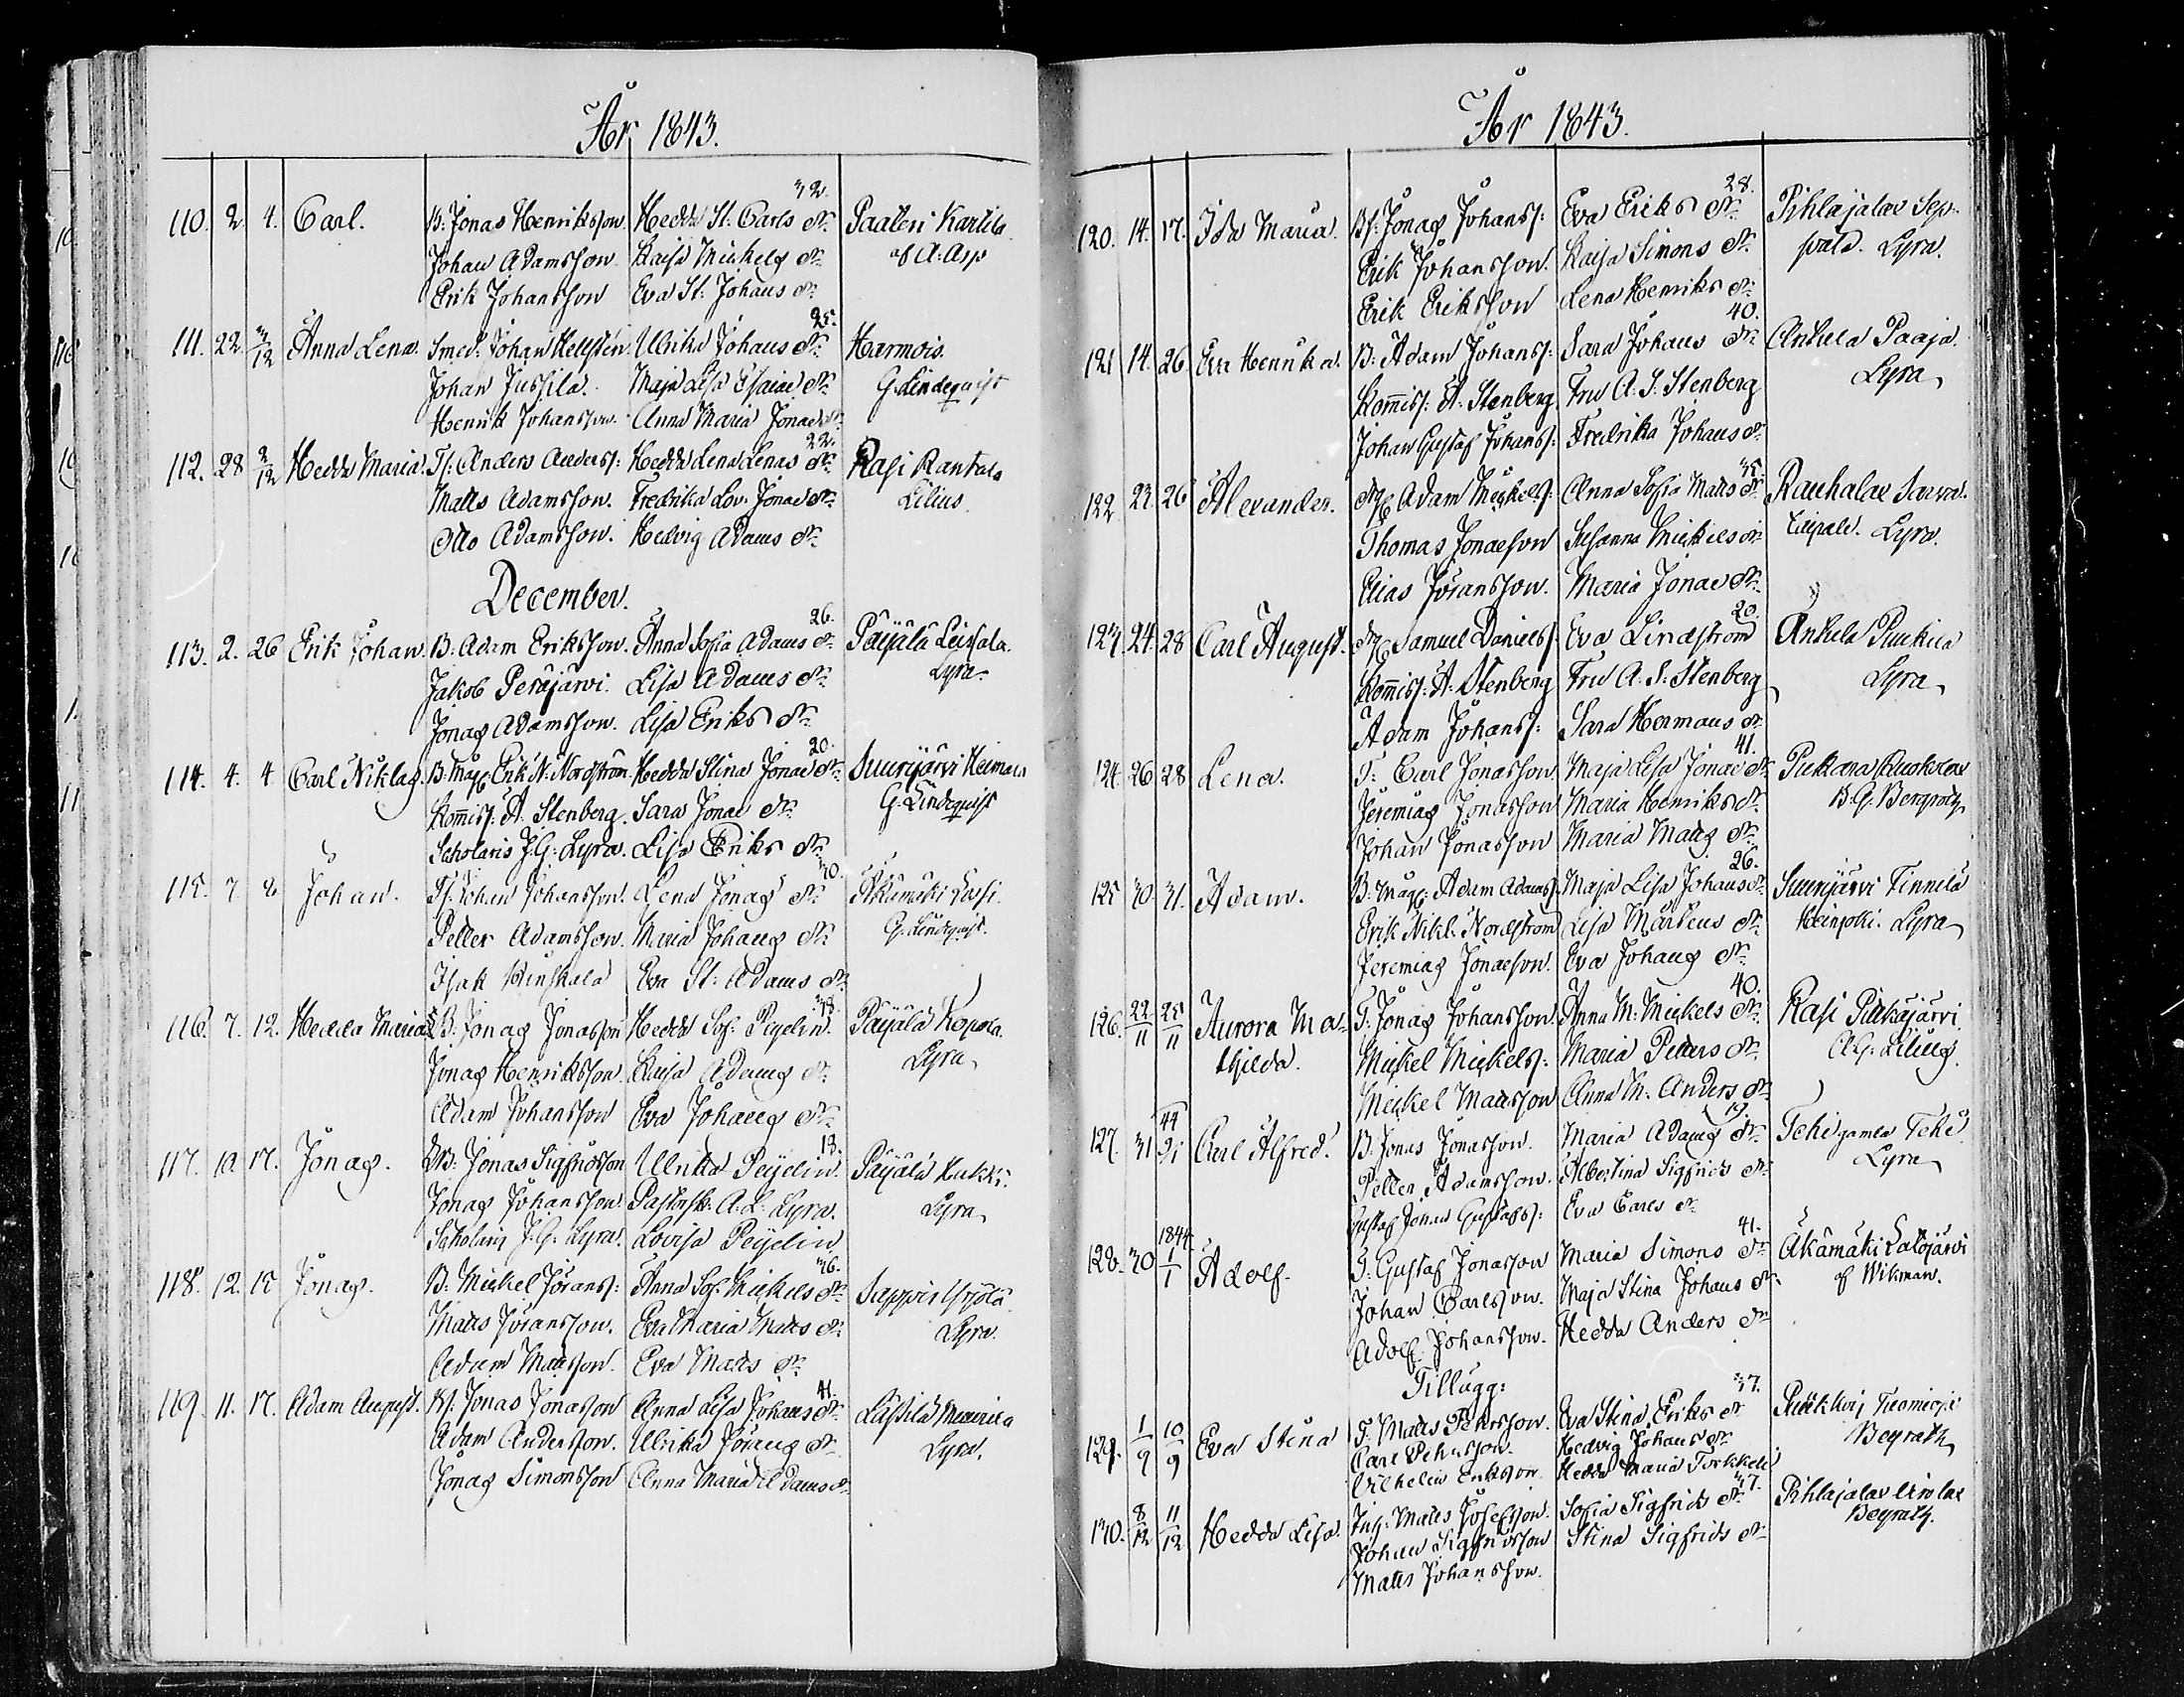 År 1843.
32.
110. 2. 4. Carl. B: Jonas Henriksson Hedda St: Carls dr Paateri Karlila
Johan Adamsson Kaisa Mickels dr af A: Asp
Erik Johansson Eva St: Johans dr
25.
111. 22 3/12 Anna Lena. Smed: Johan Hellstén. Ulrika Johans dr Harmois.
Johan Jussila. Maja Lisa Esaiae dr G. Lindequist
Henrik Johansson. Anna Maria Jonae dr
22.
112. 28 2/12 Hedda Maria. Anders Anderss: Hedda Lena Lenas dr Rasi
Matts Adamsson. Fredrika Lov: Jonae dr Lilius.
Otto Adamsson. Hedvig Adams dr
December.
26.
113. 2. 26 Erik Johan. B: Adam Eriksson. Anna Sofia Adams dr Päijälä
Jakob Peräjärvi. Lisa Adams dr Lyra
Jonas Adamsson. Lisa Eriks dr
20.
114. 4. 4 Carl Niklas. B: måg Erik N. Nordström. Hedda Stina Jonae dr Suurijärvi Heimala
Kommiss: A. Stenberg. Sara Jonae dr G. Lindequist
Scholaris J. G. Lyra. Lisa Eriks dr
30.
115. 7. 8 Johan. Johan Johansson. Lena Jonas dr Äkämäki
Petter Adamsson. Maria Johans dr G. Lindequist.
Isak Eva St: Adams dr
38.
116. 7. 12. Hedda Maria B: Jonas Jonasson Hedda Sof: Peijelin. Päijälä Kopola.
Jonas Henriksson. Kaisa Adams dr Lyra
Adam Johansson Eva Johans dr
18.
117. 10. 17. Jonas. B: Jonas Sigfridsson Ulrika Peijelin. Päijälä Kukki.
Jonas Johansson. A. L. Lyra. Lyra
Scholaris J. G. Lyra. Lovisa Peijelin
36.
118. 12. 15 Jonas. B: Mickel Jöranss: Anna Sof: Mickels dr Sappis Yrjölä
Matts Jöransson. Eva Maria Matts dr Lyra.
Adam Mattsson. Eva Matts dr
41.
119. 11. 17. Adam August. Jonas Jonasson Anna Lisa Johans dr Lassila
Adam Andersson. Ulrika Jörans dr Lyra.
Jonas Simonsson Anna Maria Adams dr
År 1843.
28.
120. 14. 17. Ida Maria. Jonas Johanss: Eva Eriks dr Pihlajalax Sep-
Erik Johansson. Kaija Simons dr pälä. Lyra.
Erik Eriksson Lena Henriks dr
40.
121 14. 26. Eva Henrika. B: Adam Johanss: Sara Johans dr Anhula Paaja.
Kommiss: A. Stenberg Fru A. S. Stenberg Lyra
Johan Gustaf Johanss: Fredrika Johans dr
35.
122 23. 26 Alexander. Adam Mickelss: Anna Sofia Matts dr Rauhalax
Thomas Jonasson Susanna Mickels dr Lyra.
Elias Jöransson. Maria Jonae dr
20.
123. 24. 28 Carl August. Samuel Danielss: Eva Lindström Anhula
Kommiss: A. Stenberg Fru A. S. Stenberg Lyra
Adam Johanss: Sara Hermans dr
41.
124. 26 28 Lena. T: Carl Jonasson Maja Lisa Jonae dr Pukara
Jeremias Jonasson Maria Henriks dr B. G. Bergroth
Johan Jonasson Maria Matts dr
26.
125 30 31. Adam. B: måg: Adam Adamss: Maja Lisa Johans dr Suurijärvi Tinnilä
Erik Nikl. Nordström Lisa Mårtens dr Heinjoki. Lyra
Jeremias Jonasson. Eva Johans dr
40.
126. 22/11 25/11 Aurora Ma- T: Jonas Johansson Anna M: Mickels dr Rasi Pitkäjärvi
thilda. Mickel Mickelss: Maria Petters dr A. G. Lilius.
Mickel Mattsson Anna M. Anders dr
44 19.
127. 31 Carl Alfred. B: Jonas Jonasson. Maria Adams dr Tehi gamla Tehi
Petter Adamsson. Albertina Sigfrids dr Lyra
Gustaf Johan Gustafss: Eva Carls dr
1844 41.
128. 30 1/1 Adolf. T: Gustaf Jonasson Maria Simons dr Äkämäki Salojärvi
Johan Carlsson. Maja Stina Johans dr af Wikman.
Adolf Johansson. Hedda Anders dr
Tillägg:
37.
129. 1/9 10/9 Eva Stina T: Matts Pehrsson. Eva Stina Eriks dr
Carl Pehrsson. Hedvig Johans dr
Wilhelm Eriksson Hedda Maria Torkkeli
37.
130. 8/12 11/12 Hedda Lisa. Inh: Matts Josefsson. Sofia Sigfrids dr Pihlajalax
Johan Sigfridsson Stina Sigfrids dr
Matts Johansson.